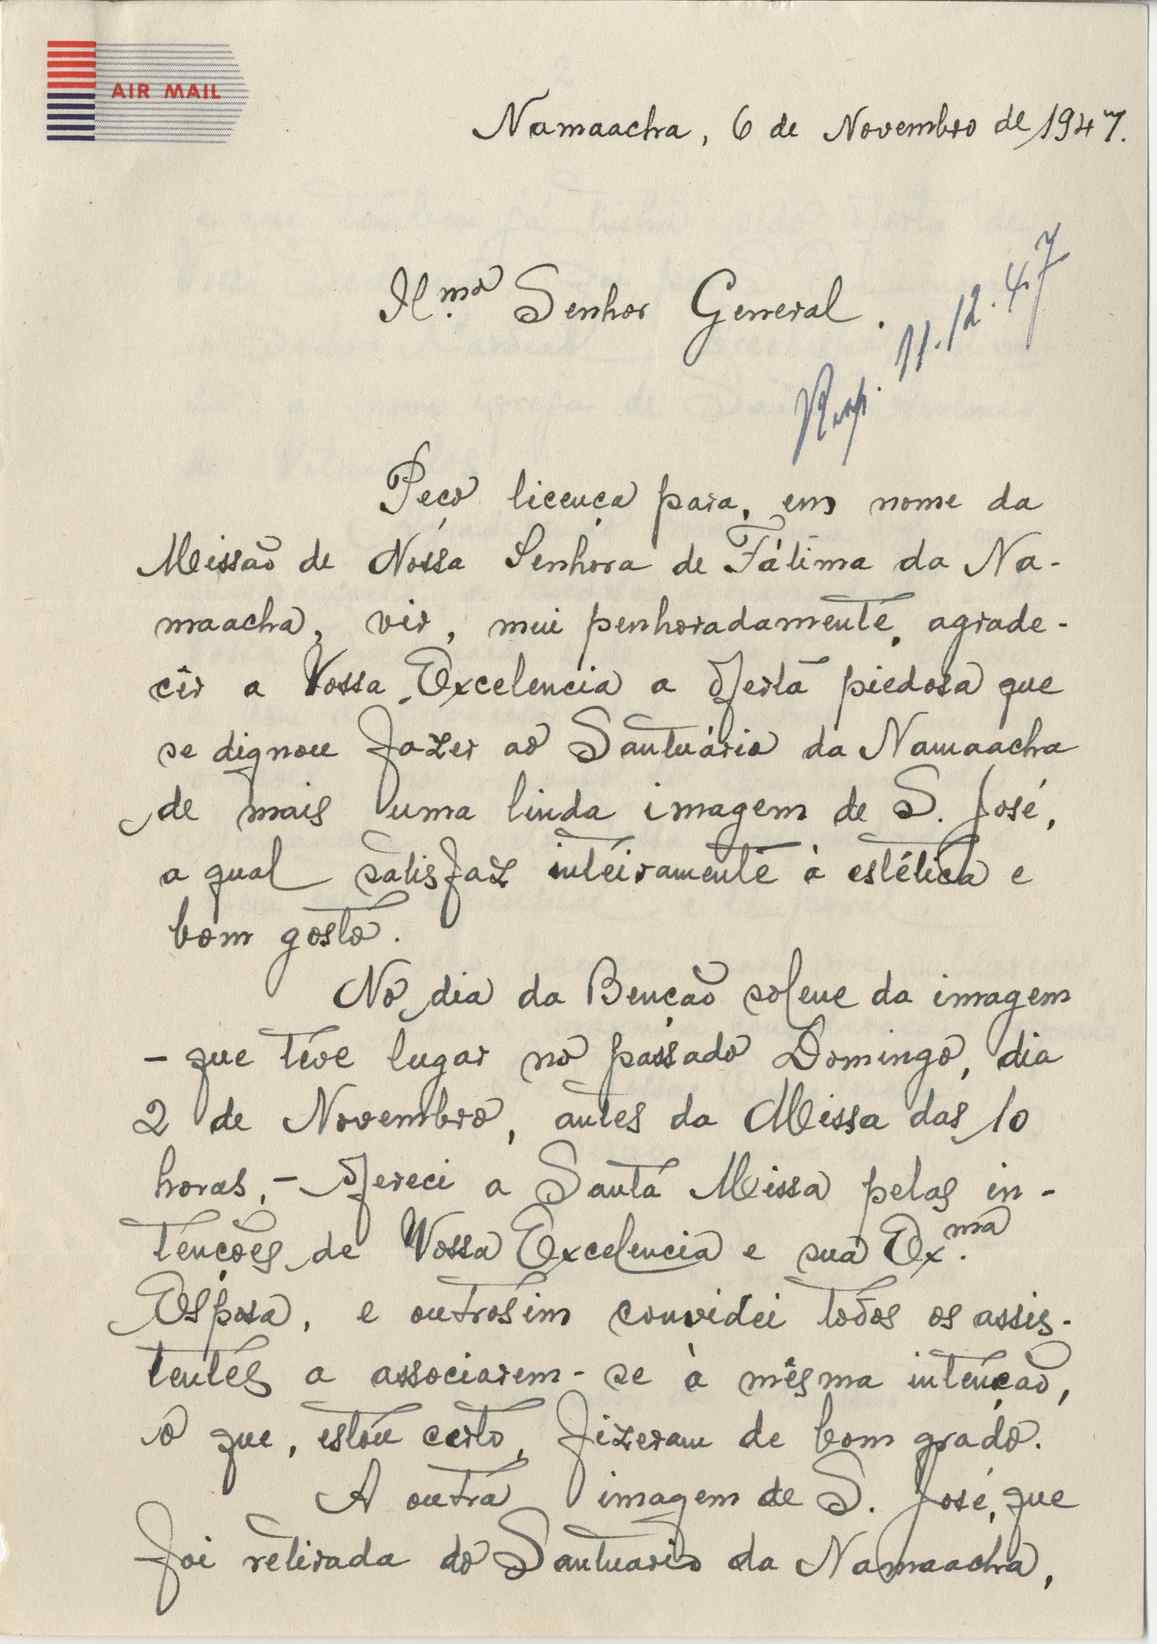 AIR MAIL
Namaacha, 6 de Novembro de 1947.
Il.mo Senhor General.
Resp. 11.12.47
Peço licença para, em nome da
Missão de Nossa Senhora de Fátima da Na-
maacha, vir, mui penhoradamente, agrade-
cêr a Vossa Excelencia a oferta piedosa que
se dignou fazer ao Santuário da Namaacha
de mais uma linda imagem de S. José,
a qual satisfaz inteiramente à estética e
bom gosto.
No dia da Benção solene da imagem
- que teve lugar no passado Domingo, dia
2 de Novembro, antes da Missa das 10
horas, - ofereci a Santa Missa pelas in-
tenções de Vossa Excelencia e sua Ex.ma
Esposa, e outrosim convidei todos os assis-
tentes a associarem-se à mêsma intenção,
o que, estou certo, fizeram de bom grado.
A outra imagem de S. José, que
foi retirada do Santuario da Namaacha,